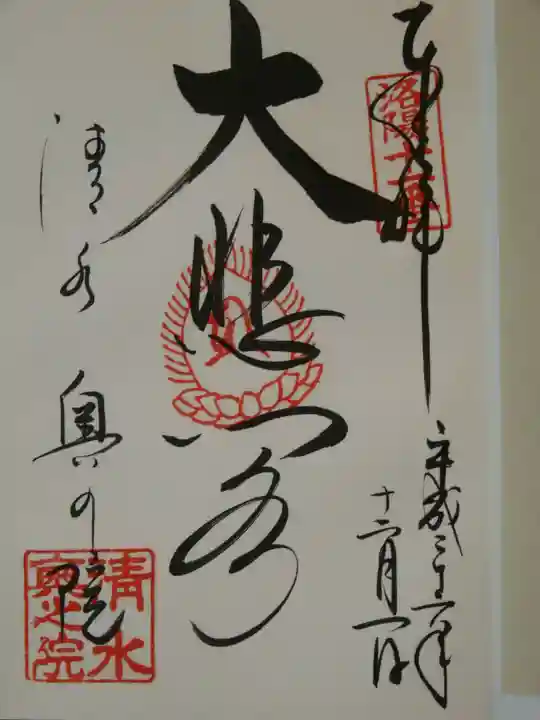 奉拝
洛陽十一番
平成二十一年
十二月一日
大悲閣
清水
奥の院
清水
奥之院